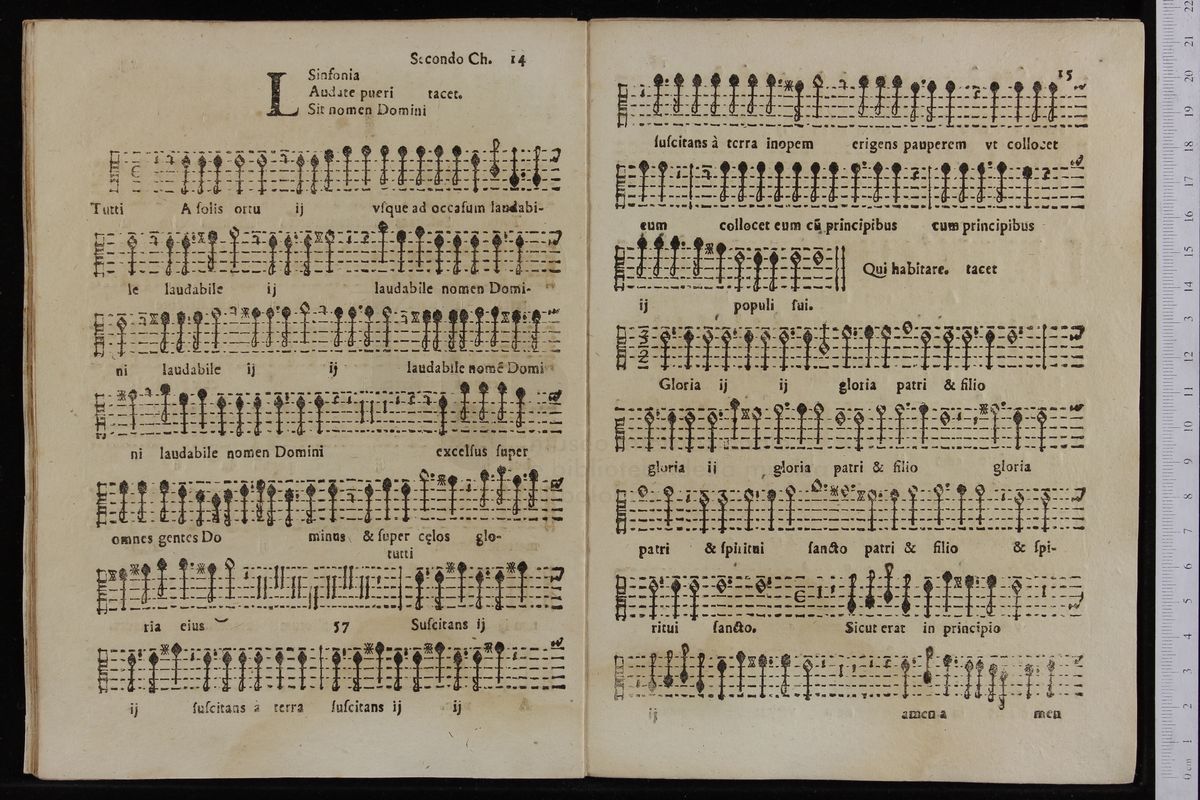 Secondo Ch. 14
Sinfonia
LAudate pueri tacet.
Sit nomen Domini
Tutti A solis ortu ij vſque ad occaſum laudabi-
le laudabile ij laudabile nomen Domi-
ni laudabile ij ij laudabile nomē Domi
ni laudabile nomen Domini excelſus ſuper
omnes gentes Do minus & ſuper cęlos glo-
tutti
ria eius 57 Suſcitans ij
ij ſuſcitans à terra ſuſcitans ij ij
15
ſuſcitans à terra inopem erigens pauperem vt collocet
eum collocet eum cū principibus cum principibus
Qui habitare. tacet
ij populi ſui.
3 2
Gloria ij ij gloria patri & filio
gloria ij gloria patri & filio gloria
patri & ſpiritui ſancto patri & filio & ſpi-
ritui ſancto. Sicut erat in principio
ij amen a men